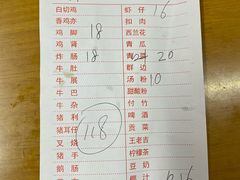 白切鸡 虾仔 16
香鸡亦 扣肉
鸡脚 18 西兰花
鸡肾 青瓜
炸肠 18 20
牛肚 群边
牛展 汤粉 10
牛巴 甜酸粉
牛杂 付竹
猪利 啤酒
猪耳仔 118 贡菜
叉烧 王老吉
猪手 柠檬茶
鹅肠 豆奶
椰汁